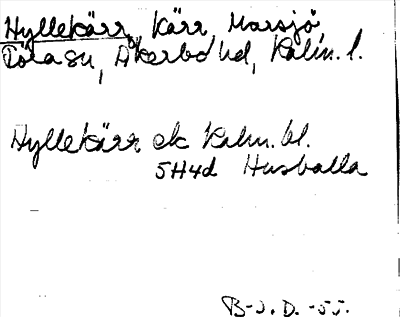 Hyllekärr, Kärr, Marsjö,
Töra sn, Åkerbo hd, Kalm. l.
Hyllekärr ek Kalm. bl.
5H4d Husvalla
B-J. D. -55.